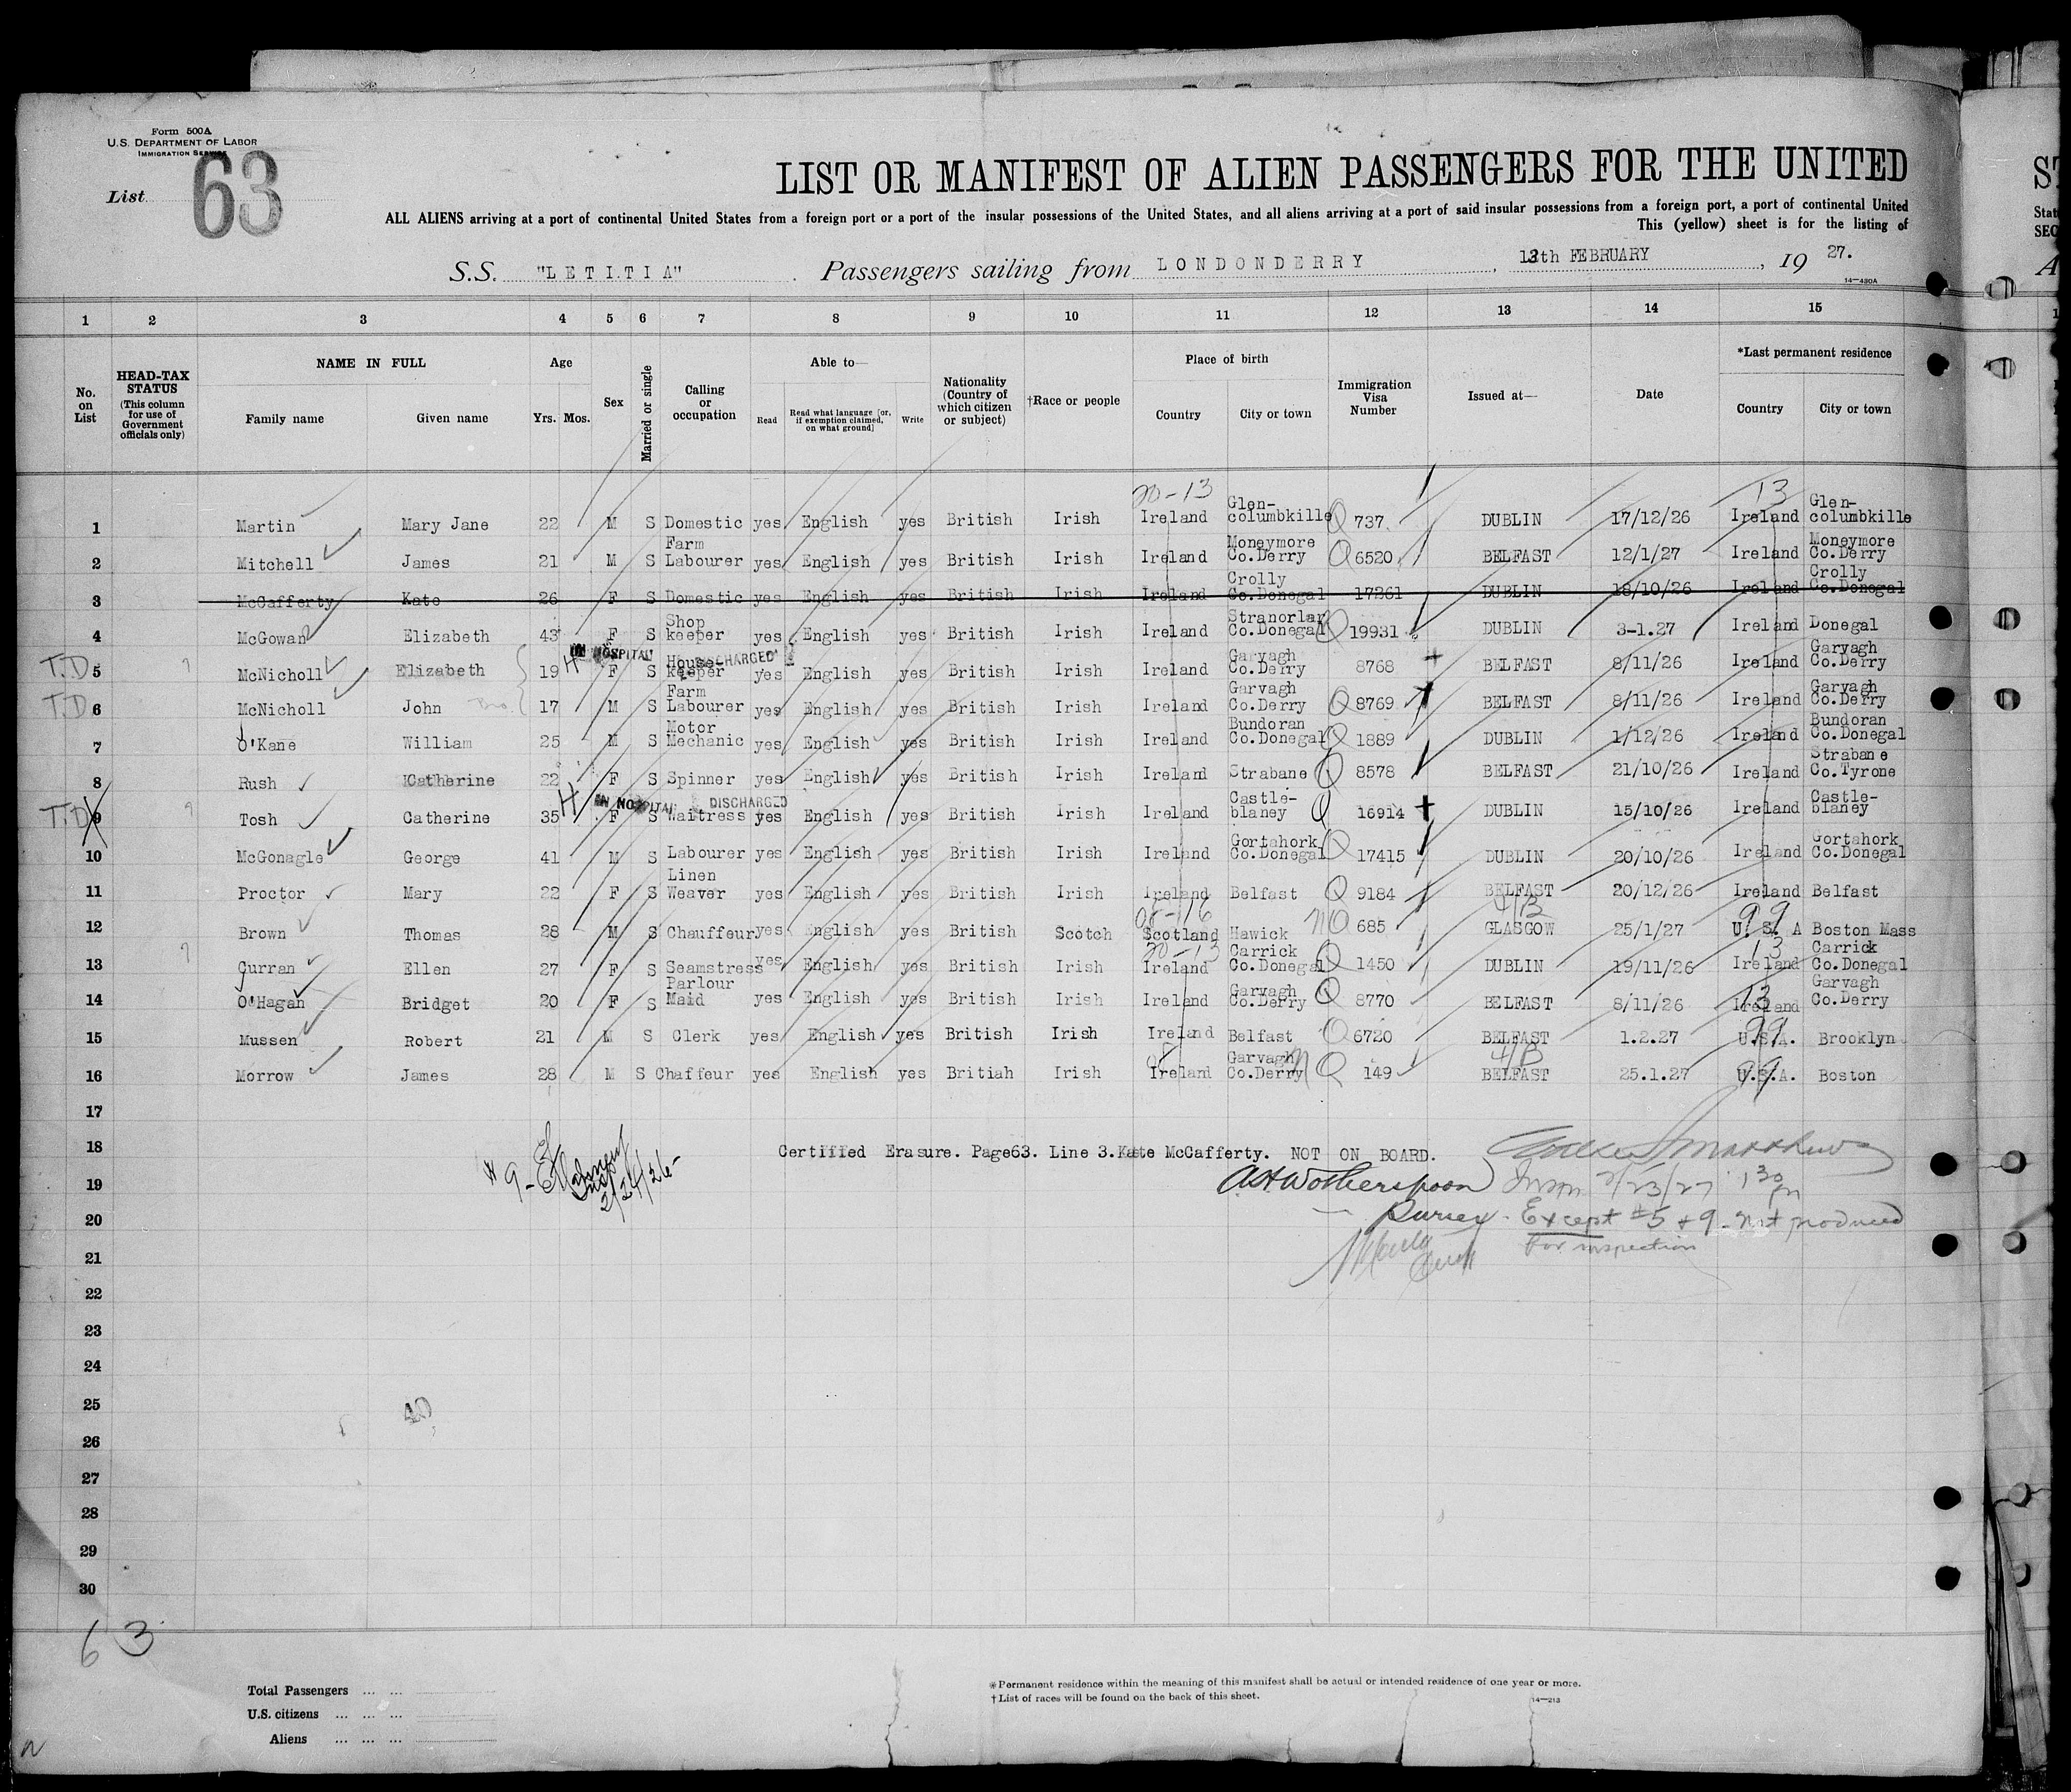 Form 500A
U.S. DEPARTMENT OF LABOR
IMMIGRATION SERVICE
List 63
LIST OR MANIFEST OF ALIEN PASSENGERS FOR THE UNITED
ALL ALIENS arriving at a port of continental United States from a foreign port or a port of the insular possessions of the United States, and all aliens arriving at a port of said insular possessions from a foreign port, a port of continental United
This (yellow) sheet is for the listing of
S.S. "LETITIA" Passengers sailing from LONDONDERRY, 13th FEBRUARY, 19 27.
14—430A
1 2 3 4 5 6 7 8 9 10 11 12 13 14 15
No. on List
HEAD-TAX STATUS (This column for use of Government officials only)
NAME IN FULL Family name Given name
Age Yrs. Mos.
Sex
Married or single
Calling or occupation
Able to— Read Read what language [or, if exemption claimed, on what ground] Write
Nationality (Country of which citizen or subject)
†Race or people
Place of birth Country City or town
Immigration Visa Number
Issued at—
Date
*Last permanent residence Country City or town
20-13 13
1 Martin Mary Jane 22 M S Domestic yes English yes British Irish Ireland Glen-columbkille Q 737 DUBLIN 17/12/26 Ireland Glen-columbkille
2 Mitchell James 21 M S Farm Labourer yes English yes British Irish Ireland Moneymore Co.Derry Q 6520 BELFAST 12/1/27 Ireland Moneymore Co.Derry
3 McCafferty Kate 26 F S Domestic yes English yes British Irish Ireland Crolly Co.Donegal 17261 DUBLIN 18/10/26 Ireland Crolly Co.Donegal
4 McGowan Elizabeth 43 F S Shop keeper yes English yes British Irish Ireland Stranorlar Co.Donegal Q 19931 DUBLIN 3-1.27 Ireland Donegal
IN HOSPITAL DISCHARGED
T.D 5 McNicholl Elizabeth 19 H F S House-keeper yes English yes British Irish Ireland Garvagh Co.Derry 8768 BELFAST 8/11/26 Ireland Garvagh Co.Derry
T.D 6 McNicholl John Bro. 17 M S Farm Labourer yes English yes British Irish Ireland Garvagh Co.Derry Q 8769 BELFAST 8/11/26 Ireland Garvagh Co.Derry
7 O'Kane William 25 M S Motor Mechanic yes English yes British Irish Ireland Bundoran Co.Donegal Q 1889 DUBLIN 1/12/26 Ireland Bundoran Co.Donegal
8 Rush Catherine 22 F S Spinner yes English yes British Irish Ireland Strabane Q 8578 BELFAST 21/10/26 Ireland Strabane Co.Tyrone
IN HOSPITAL DISCHARGED
T.D 9 Tosh Catherine 35 H F S Waitress yes English yes British Irish Ireland Castle-blaney Q 16914 DUBLIN 15/10/26 Ireland Castle-blaney
10 McGonagle George 41 M S Labourer yes English yes British Irish Ireland Gortahork Co.Donegal Q 17415 DUBLIN 20/10/26 Ireland Gortahork Co.Donegal
11 Proctor Mary 22 F S Linen Weaver yes English yes British Irish Ireland Belfast Q 9184 BELFAST 20/12/26 Ireland Belfast
4/B 99
12 Brown Thomas 28 M S Chauffeur yes English yes British Scotch Scotland Hawick NQ 685 GLASGOW 25/1/27 U. S. A Boston Mass
20-13 13
13 Curran Ellen 27 F S Seamstress yes English yes British Irish Ireland Carrick Co.Donegal Q 1450 DUBLIN 19/11/26 Ireland Carrick Co.Donegal
14 O'Hagan Bridget 20 F S Parlour Maid yes English yes British Irish Ireland Garvagh Co.Derry Q 8770 BELFAST 8/11/26 13 Ireland Garvagh Co.Derry
15 Mussen Robert 21 M S Clerk yes English yes British Irish Ireland Belfast Q 6720 BELFAST 1.2.27 99 U.S.A. Brooklyn
4/B
16 Morrow James 28 M S Chaffeur yes English yes Britiah Irish Ireland Garvagh Co.Derry NQ 149 BELFAST 25.1.27 99 U.S.A. Boston
17
18 Certified Erasure. Page63. Line 3.Kate McCafferty. NOT ON BOARD.
#9 - 2/24/26
19 A H Wotherspoon Inspr 2/23/27 1 30 pm
20 Purser. Except #5 + 9 - not produced
for inspection
21
22
23
24
25 40
26
27
28
29
30
63
Total Passengers
U.S. citizens
Aliens
*Permanent residence within the meaning of this manifest shall be actual or intended residence of one year or more.
†List of races will be found on the back of this sheet.
14—213